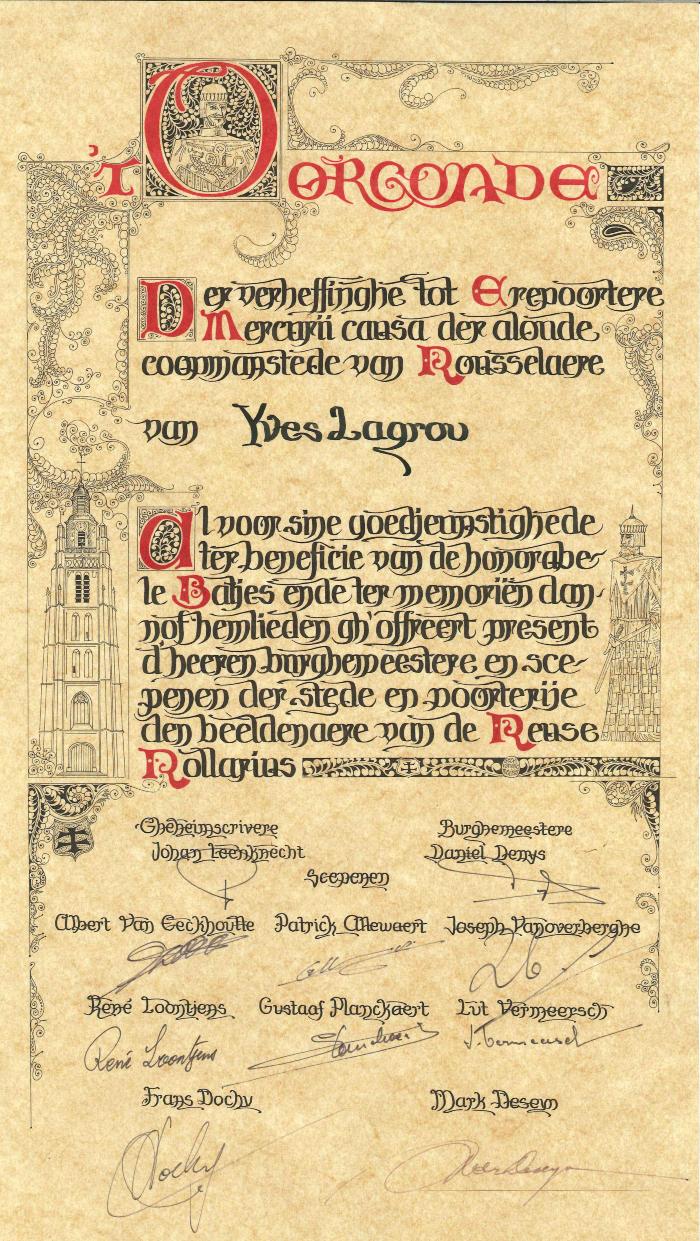 't Oorconde
Der verheffinghe tot Erepoortere
Mercurii causa der aloude
coopmanstede van Rousselaere
van Yves Lagrou
Al voor sine goedjeunstighede
ter beneficie van de honorabe-
le Batjes ende ter memoriën dan-
nof hemlieden gh'offreert present
d'heeren burghemeestere en sce-
penen der stede en poorterije
den beeldenaere van de Reuse
Rollarius
Gheheimscrivere Burghemeestere
Johan Leenknecht Daniel Denys
Scepenen
Albert Van Eeckhoutte Patrick Allewaert Joseph Vanoverberghe
René Loontjens Gustaaf Planckaert Lut Vermeersch
René Loontjens
Frans Dochy Mark Deseyn
Dochy